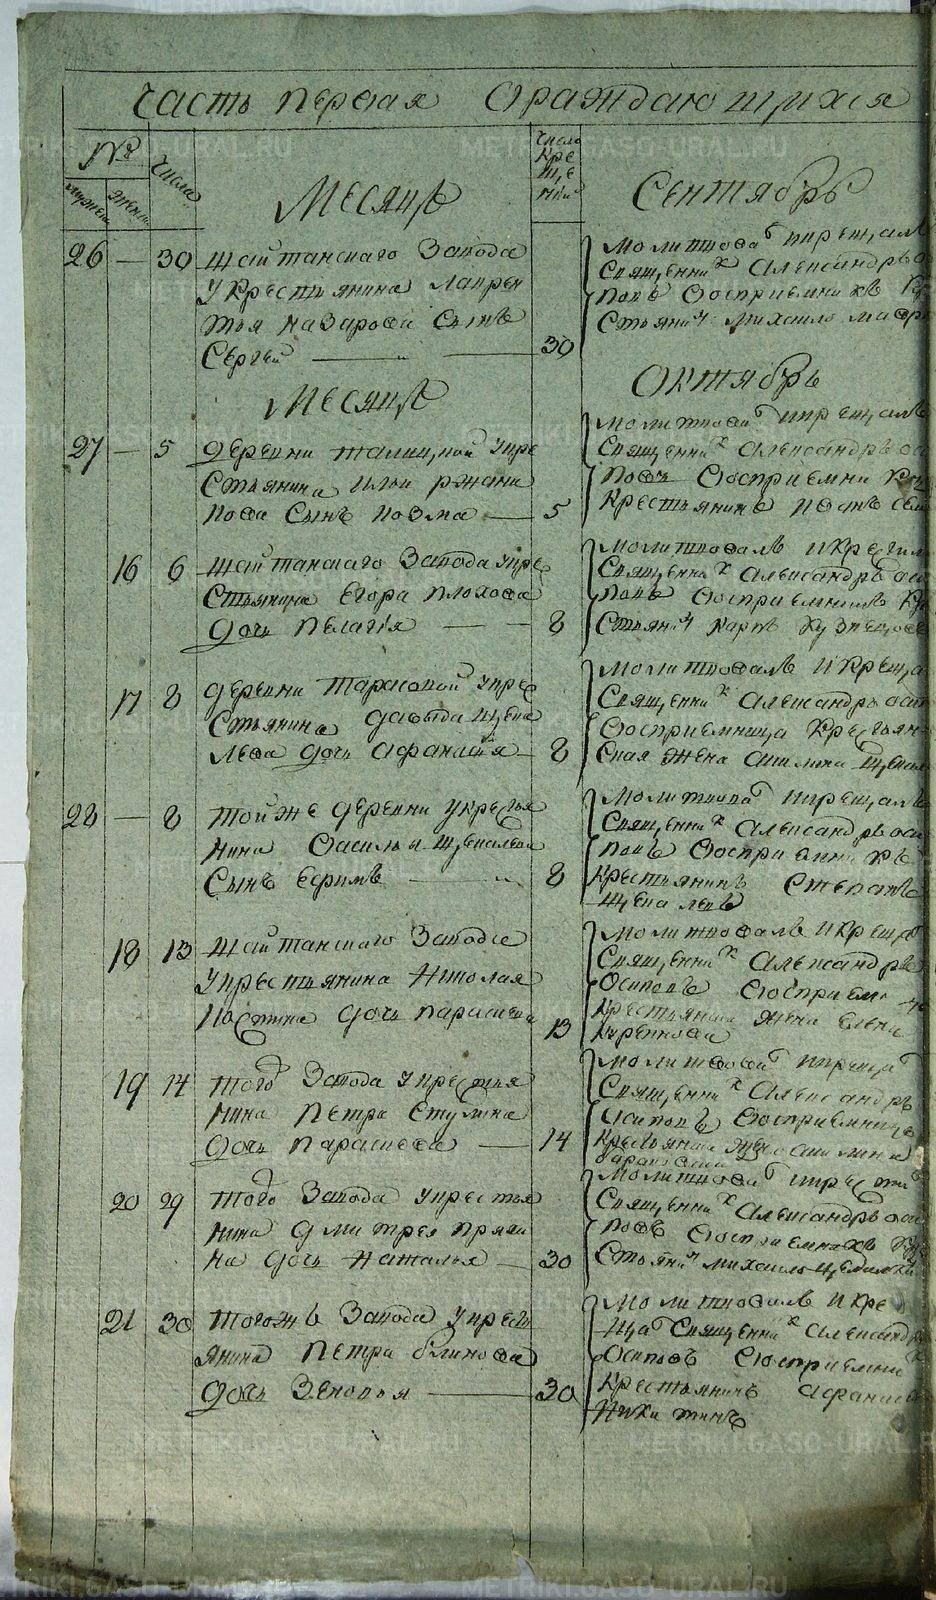 Часть первая О раждающихся
№
Числа
Число
Кре
ще
ния
мужеск
женск
Месяцъ
Сентябрь
26 — 30 Шайтанскаго Завода
у Крестьянина Лаврен
тья Назарова Сынъ
Сергей — 30
Молитвова и крещалъ
Священник Александръ О
повъ Восприемникъ Кр
Стьянин Михаило
Месяцъ
Октябрь
27 — 5 деревни Талицкой у кре
Стьянина Ильи
нова Сынъ Козма — 5
Молитвова и крещалъ
Священник Александръ оси
повъ Восприемни
Крестьянинъ Иванъ
16 6 Шайтанскаго Завода у кре
Стьянина Егора Плохова
дочь Пелагія — 8
Молитвовалъ и Крестил
Священник Александръ оси
повъ Восприемникъ Кр
Стьянин Карпъ Кузнецов
17 8 деревни Тарасовой у крес
Стьянина Давыда Щепа
лева дочь Афанасія — 8
Молитвовалъ и Креща
Священник Александръ оси
Восприемница Крестьян
ская Жена Акилина Щепал
28 — 8 той же деревни у кресьтя
нина Василья Щепалева
Сынъ Есримъ — 8
Молитвова и крещалъ
Священник Александръ оси
повъ Восприемникъ
Крестьянинъ Степанъ
Щепалевъ
18 13 Шайтанскаго Завода
у крестьянина Николая
дочь Парасковя 13
Молитвовалъ и Креща
Священник Александръ
Осиповъ Восприем
Крестьянска Жена Елена
19 14 того Завода у крестья
нина Петра Ступина
дочь Парасковя — 14
Молитвова и креща
Священник Александръ
Осиповъ Восприемница
Крестьянска Жена Акилина
20 29 того Завода у крестья
нина Дмитрея Пряхи
на дочь Наталья — 30
Молитвова и крести
Священник Александръ оси
повъ Восприемникъ Кре
Стьянин Михаило
21 30 тогожъ Завода у крест
янина Петра блинова
дочь Зеновья — 30
Молитвовалъ и Кре
ща Священник Александр
Осиповъ Восприемни
Крестьянинъ Афанас
Никитинъ
METRIKI.GASO-URAL.RU